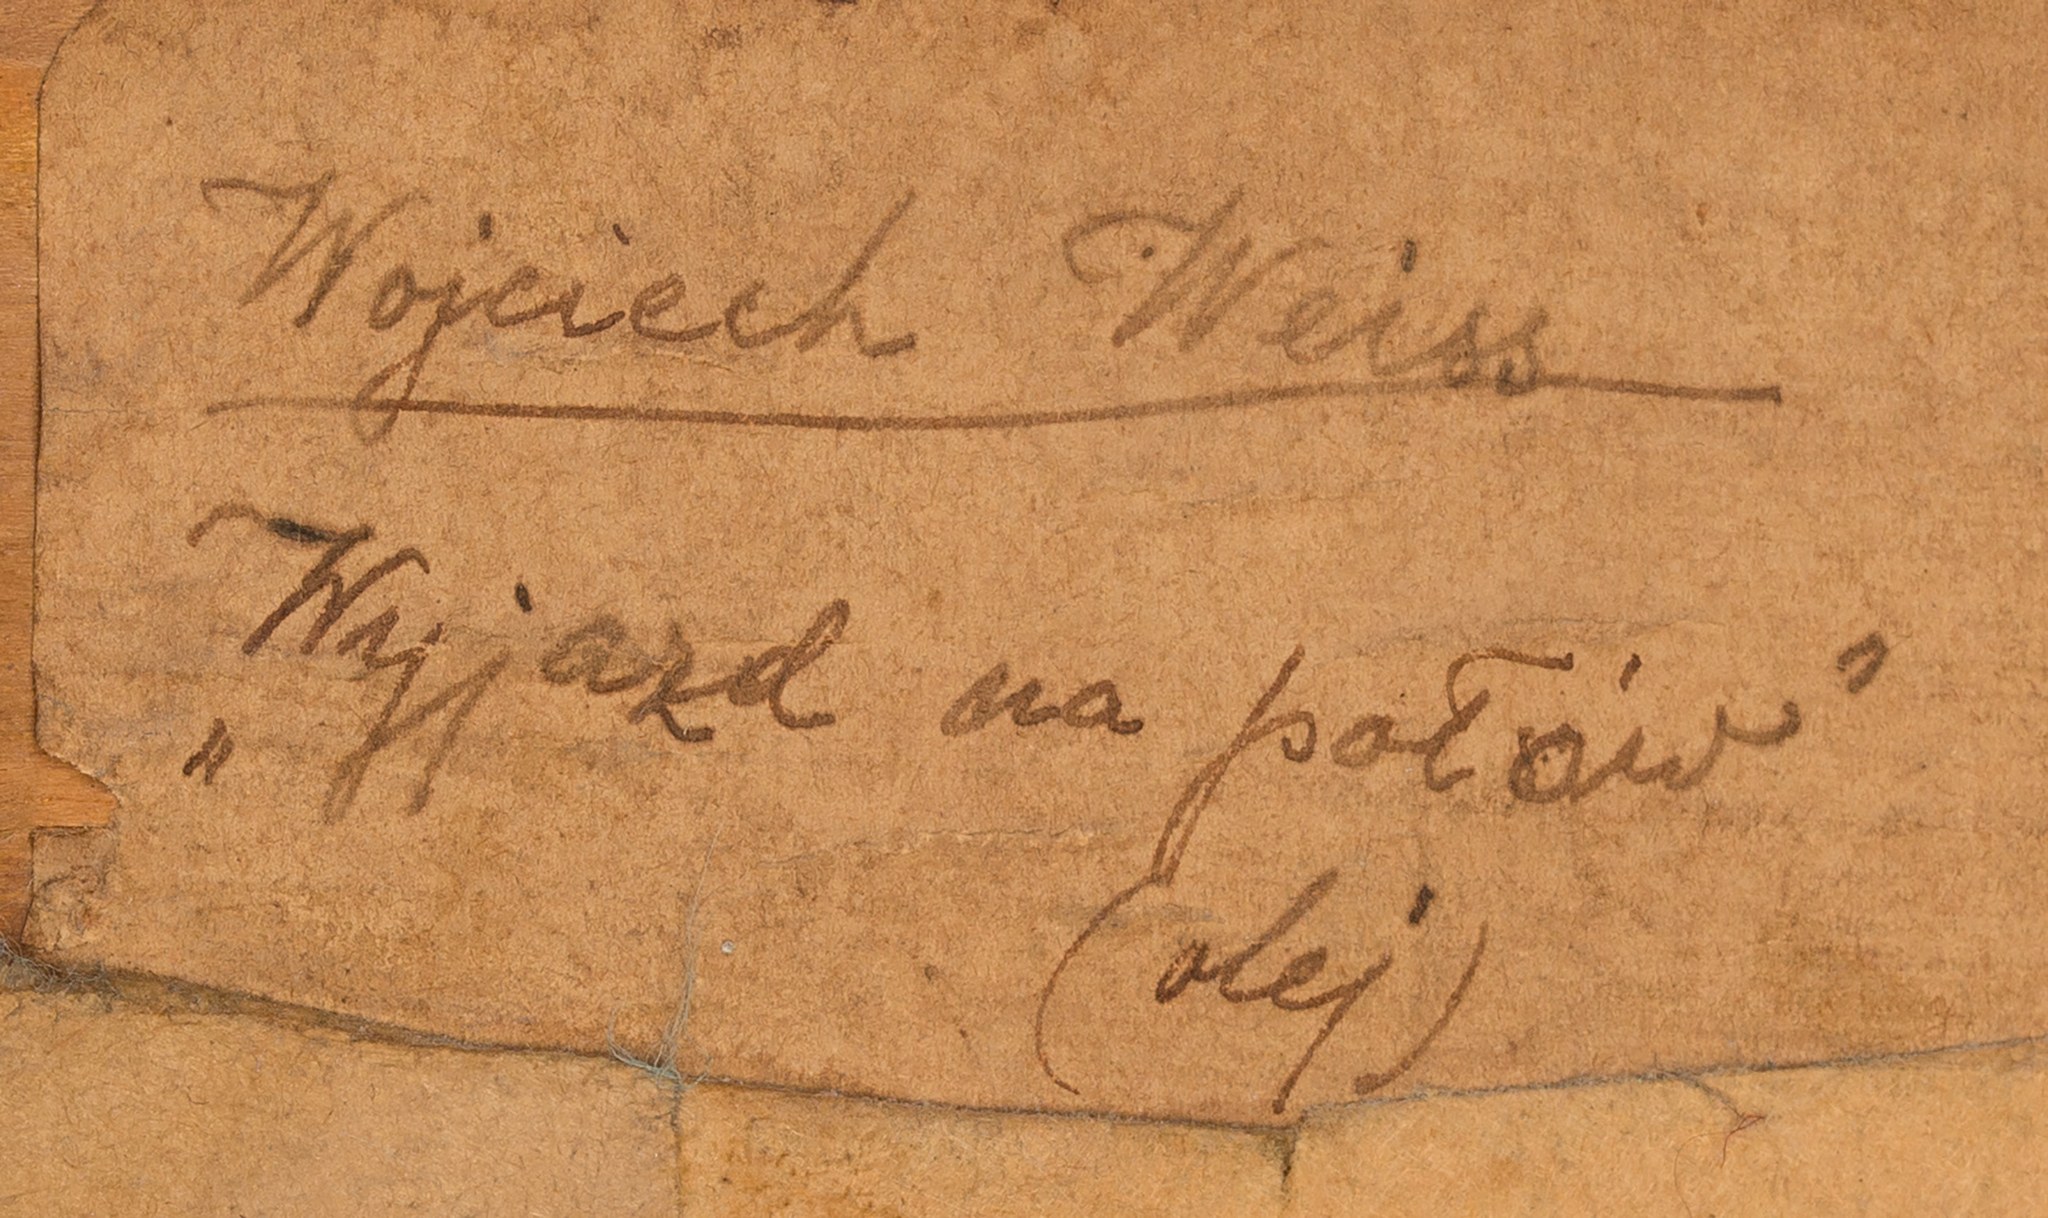 Wojciech Weiss
„Wyjazd na połów”
(olej)